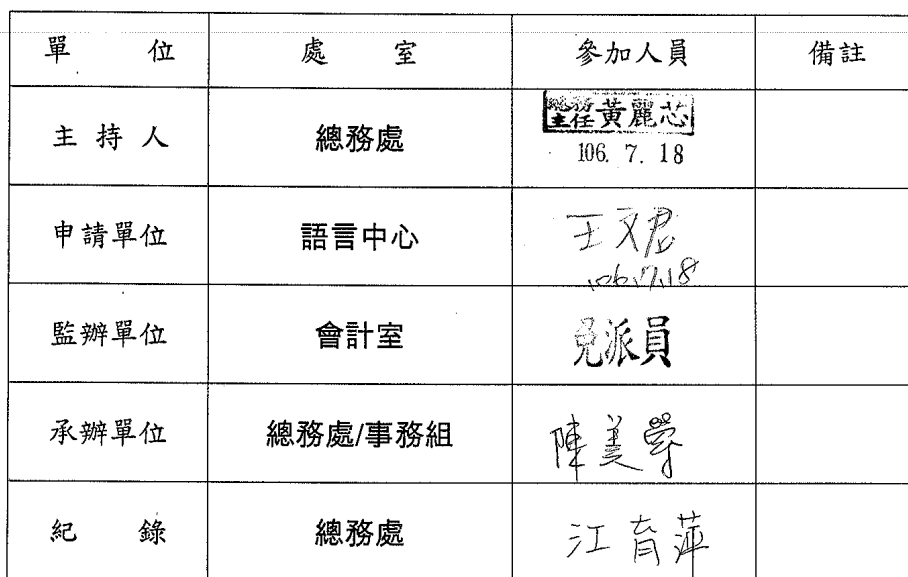 單 位 處 室 參加人員 備註
主持人 總務處 總務主任 黃麗芯
106. 7. 18
申請單位 語言中心 王文君
106.7.18
監辦單位 會計室 免派員
承辦單位 總務處/事務組 陳美
紀 錄 總務處 江育萍